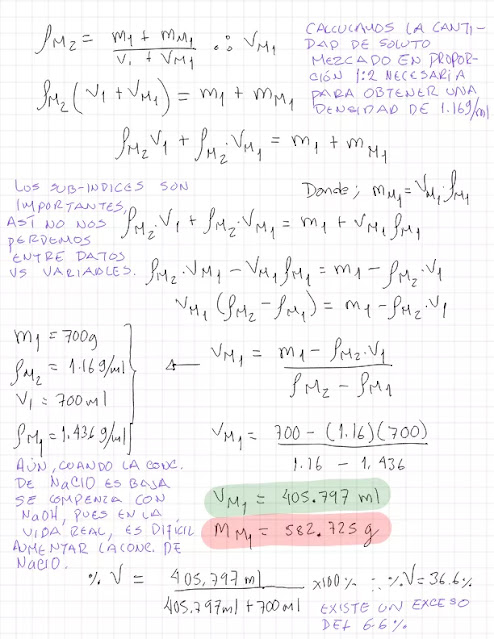 ρM2 = (m1 + mM1) / (V1 + VM1) ∴ VM1
CALCULAMOS LA CANTI-
DAD DE SOLUTO
MEZCADO EN PROPOR-
CIÓN 1:2 NECESARIA
PARA OBTENER UNA
DENSIDAD DE 1.16g/ml
ρM2 (V1 + VM1) = m1 + mM1
ρM2 V1 + ρM2 · VM1 = m1 + mM1
LOS SUB-INDICES SON
IMPORTANTES,
ASÍ NO NOS
PERDEMOS
ENTRE DATOS
VS VARIABLES.
Donde; mM1 = VM1 · ρM1
ρM2 · V1 + ρM2 · VM1 = m1 + VM1 ρM1
ρM2 · VM1 - VM1 ρM1 = m1 - ρM2 · V1
VM1 (ρM2 - ρM1) = m1 - ρM2 · V1
m1 = 700g
ρM2 = 1.16 g/ml
V1 = 700 ml
ρM1 = 1.436 g/ml
VM1 = (m1 - ρM2 · V1) / (ρM2 - ρM1)
VM1 = (700 - (1.16)(700)) / (1.16 - 1.436)
AÚN, CUANDO LA CONC.
DE NaClO ES BAJA
SE COMPENZA CON
NaOH, PUES EN LA
VIDA REAL, ES DIFÍCIL
AUMENTAR LA CONC. DE
NaClO.
VM1 = 405.797 ml
MM1 = 582.725 g
% V = 405,797 ml / (405.797 ml + 700 ml) x100% ∴ %V = 36.6%
EXISTE UN EXCESO
DEL 6.6%